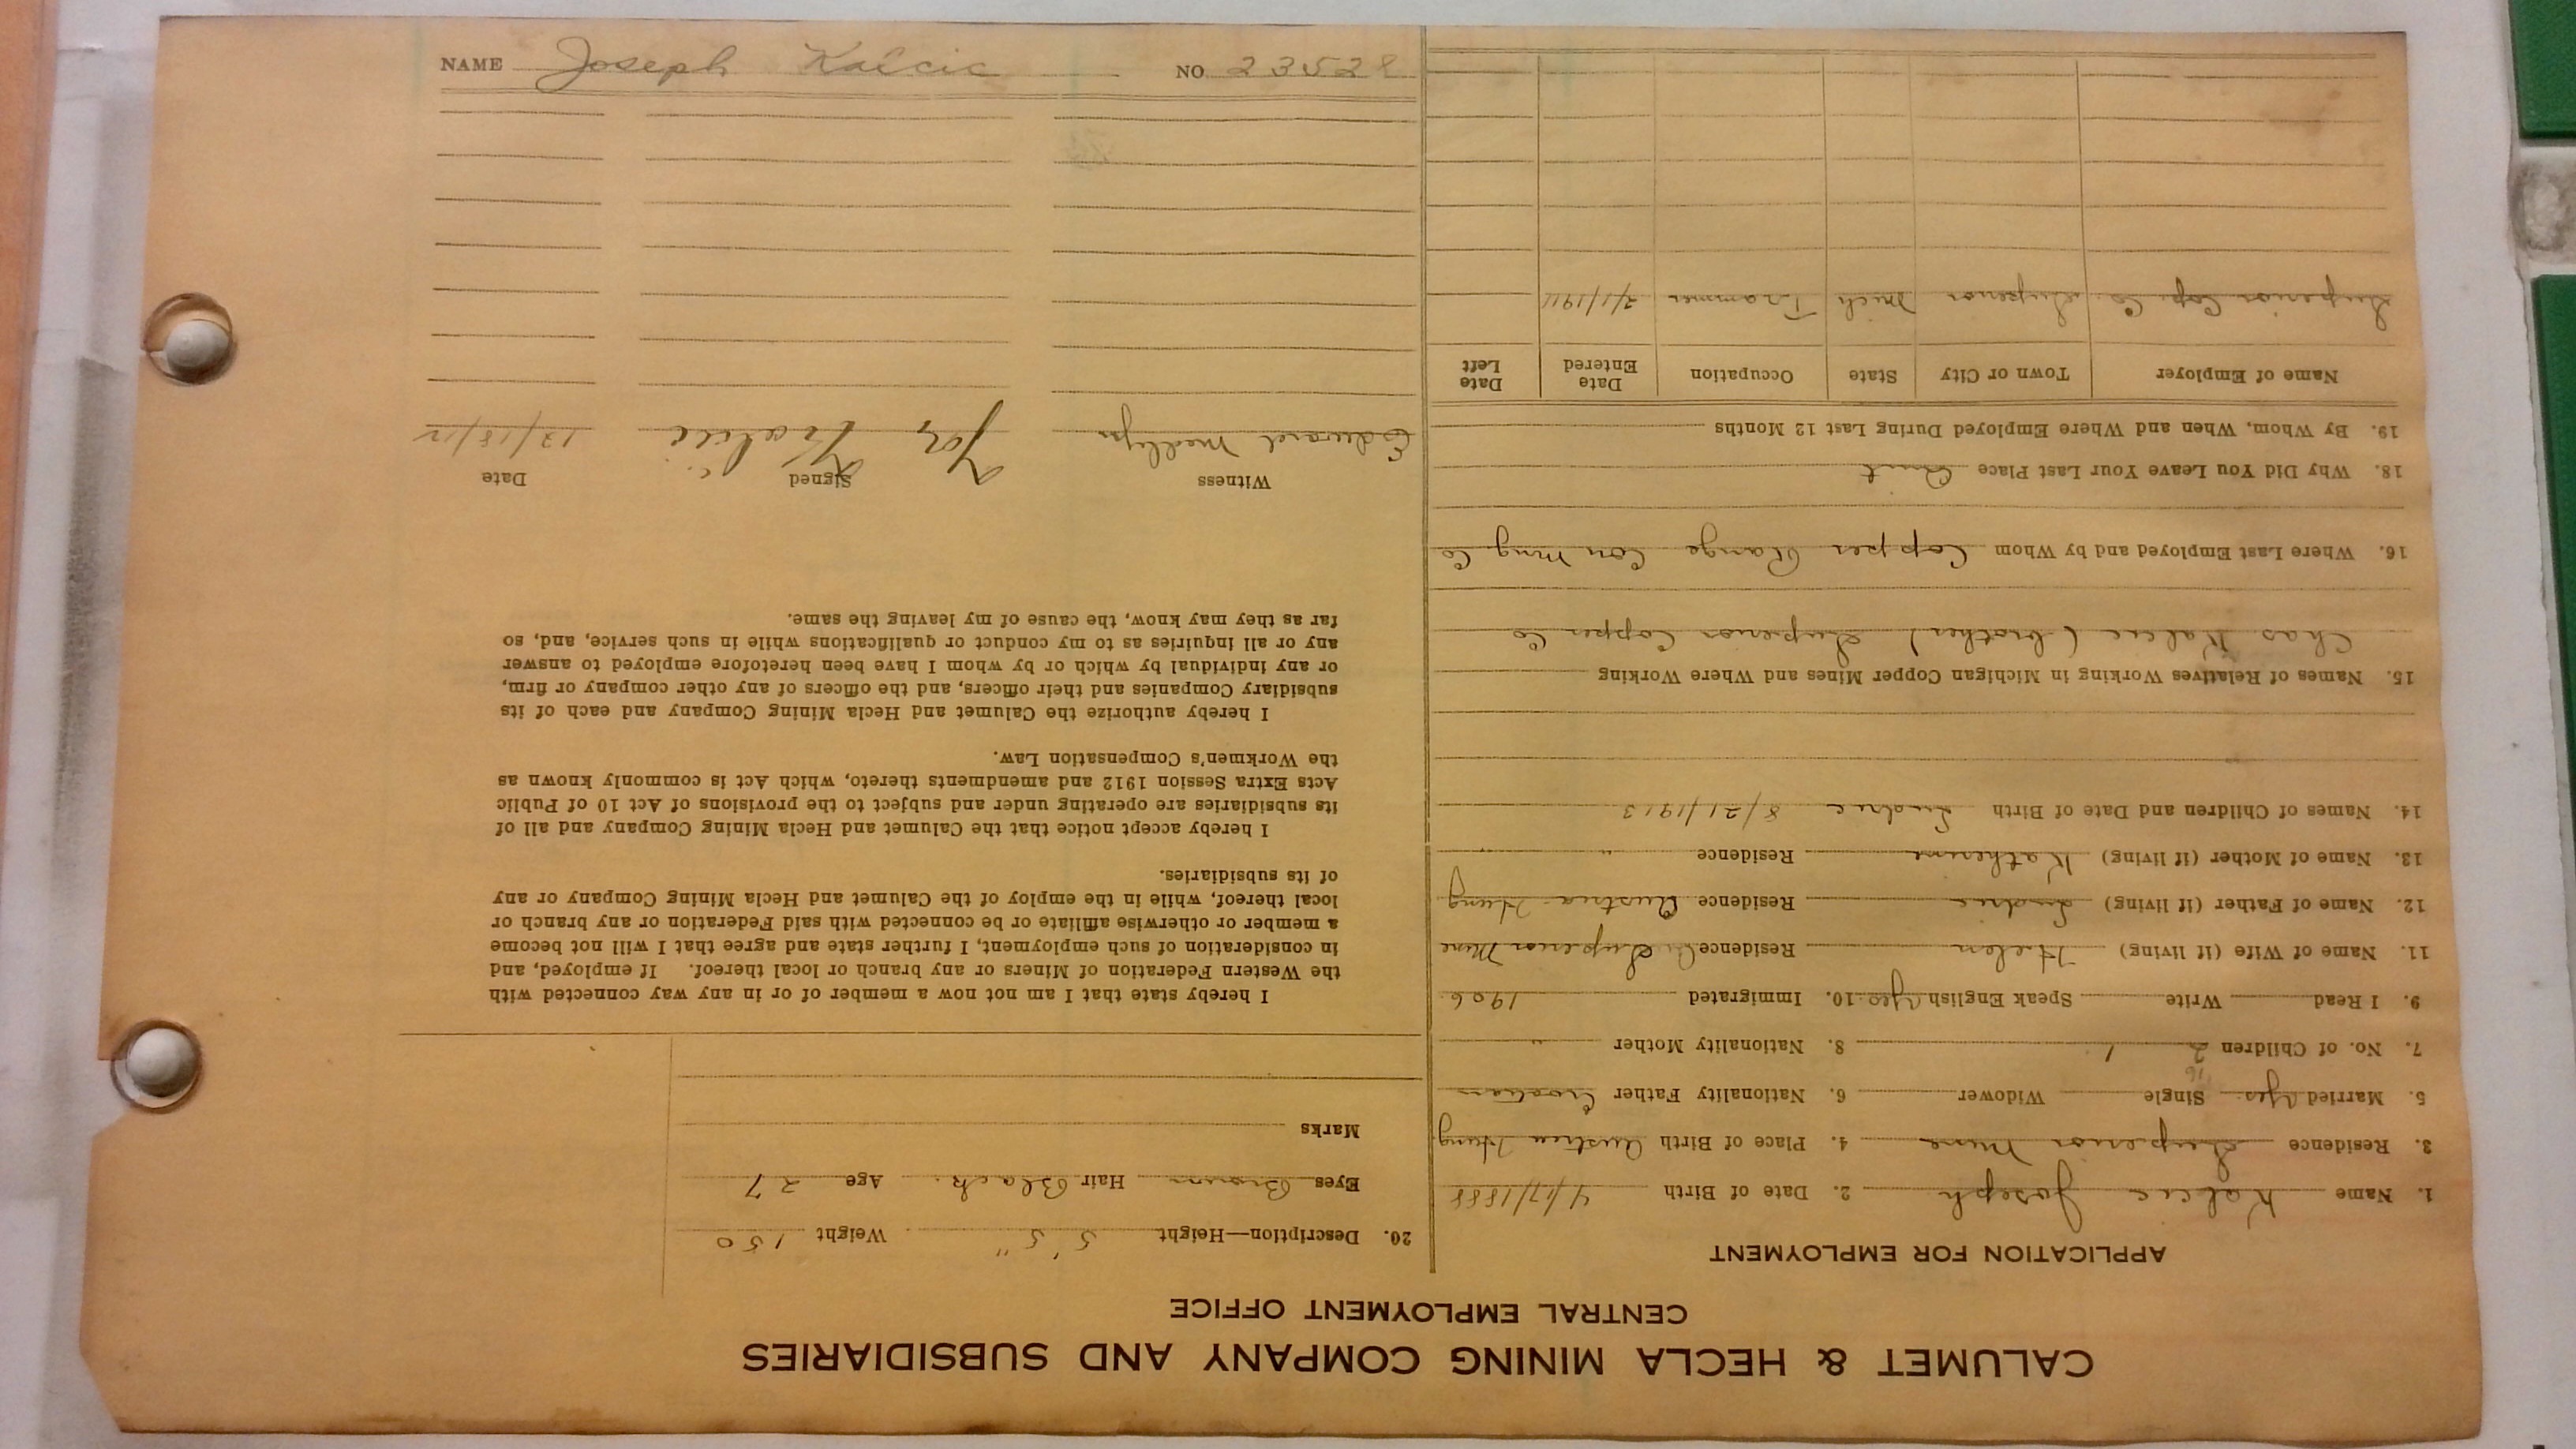 CALUMET & HECLA MINING COMPANY AND SUBSIDIARIES
CENTRAL EMPLOYMENT OFFICE
APPLICATION FOR EMPLOYMENT
1. Name Kalcic Joseph 2. Date of Birth 4/17/1888
3. Residence Superior Mine 4. Place of Birth Austria Hung
5. Married Yes Single Widower 6. Nationality Father Croatian
7. No. of Children 2 1 8. Nationality Mother "
9. I Read Write Speak English Yes 10. Immigrated 1906
11. Name of Wife (if living) Helen Residence Superior Mine
12. Name of Father (if living) Residence Austria Hung
13. Name of Mother (if living) Katherine Residence " "
14. Names of Children and Date of Birth 8/21/1913
15. Names of Relatives Working in Michigan Copper Mines and Where Working
Chas Kalcic (brother) Superior Copper Co
16. Where Last Employed and by Whom Copper Range Con Mng Co
18. Why Did You Leave Your Last Place Quit
19. By Whom, When and Where Employed During Last 12 Months
Name of Employer Town or City State Occupation Date Entered Date Left
Superior Cop. Co. Superior Mich Trammer 2/1/1911
20. Description—Height 5' 5" Weight 150
Eyes Brown Hair Black Age 27
Marks
I hereby state that I am not now a member of or in any way connected with
the Western Federation of Miners or any branch or local thereof. If employed, and
in consideration of such employment, I further state and agree that I will not become
a member or otherwise affiliate or be connected with said Federation or any branch or
local thereof, while in the employ of the Calumet and Hecla Mining Company or any
of its subsidiaries.
I hereby accept notice that the Calumet and Hecla Mining Company and all of
its subsidiaries are operating under and subject to the provisions of Act 10 of Public
Acts Extra Session 1912 and amendments thereto, which Act is commonly known as
the Workmen's Compensation Law.
I hereby authorize the Calumet and Hecla Mining Company and each of its
subsidiary Companies and their officers, and the officers of any other company or firm,
or any individual by which or by whom I have been heretofore employed to answer
any or all inquiries as to my conduct or qualifications while in such service, and, so
far as they may know, the cause of my leaving the same.
Witness Signed Date
Edward Medlyn Jos Kalcic
NAME Joseph Kalcic NO 23528